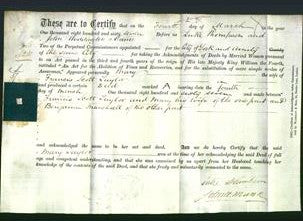 These are to Certify that on the Fourth day of March in the year
One thousand eight hundred and sixty seven Before us Luke Thompson and
John
Two of the Perpetual Commissioners appointed for the City of and county
of the same City for taking the Acknowledgments of Deeds by Married Women pursuant
to an Act passed in the third and fourth years of the reign of his late Majesty King William the Fourth,
intituled "An Act for the Abolition of Fines and Recoveries, and for the substitution of more simple modes of
Assurance," appeared personally Mary
the wife of Francis Scott Taylor
and produced a certain Deed marked A bearing date the fourth
day of March One thousand eight hundred and sixty seven and made between
Francis Scott Taylor and Mary his wife of the one part and
Benjamin of the other part
and acknowledged the same to be her act and deed. And we do hereby Certify that the said
Mary Taylor was at the time of her acknowledging the said Deed of full
age and competent understanding, and that she was examined by us apart from her Husband touching her
knowledge of the contents of the said Deed, and that she freely and voluntarily consented to the same.
Luke Thompson